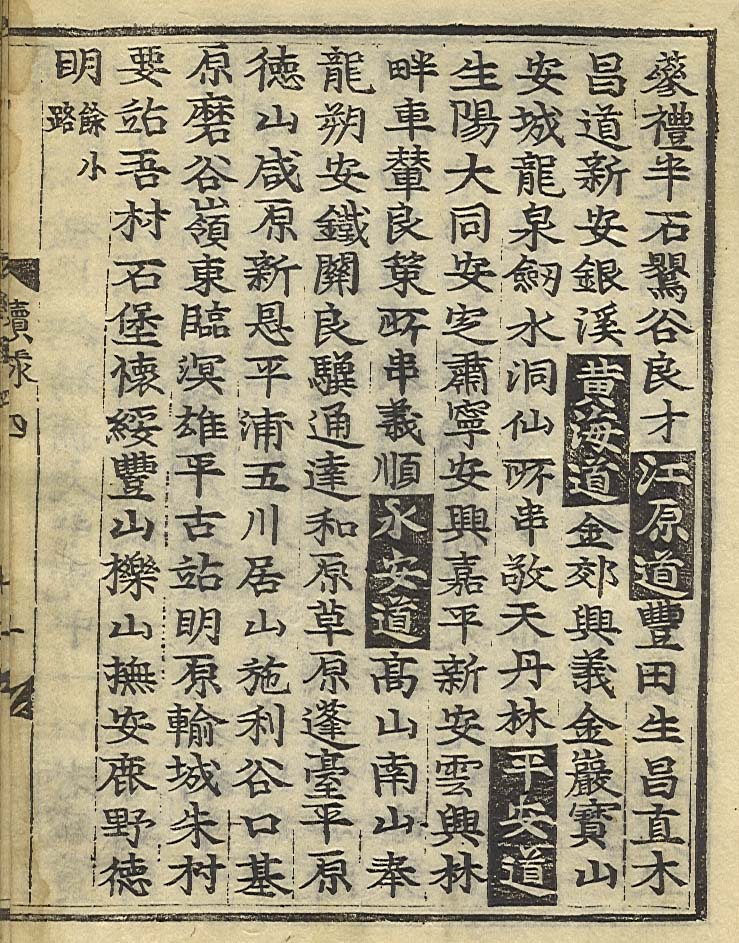 蔘禮半石鸎谷良才江原道豐田生昌直木
昌道新安銀溪黃海道金郊興義金巖寶山
安城龍泉劒水洞仙所串敬天丹林平安道
生陽大同安定肅寧安興嘉平新安雲興林
畔車輦良策所串義順永安道高山南山奉
龍朔安鐵關良驥通達和原草原蓬臺平原
德山咸原新恩平浦五川居山施利谷口基
原磨谷嶺東臨溟雄平古站明原輸城朱村
要站吾村石堡懷綏豐山櫟山撫安鹿野德
明餘小路
續錄四